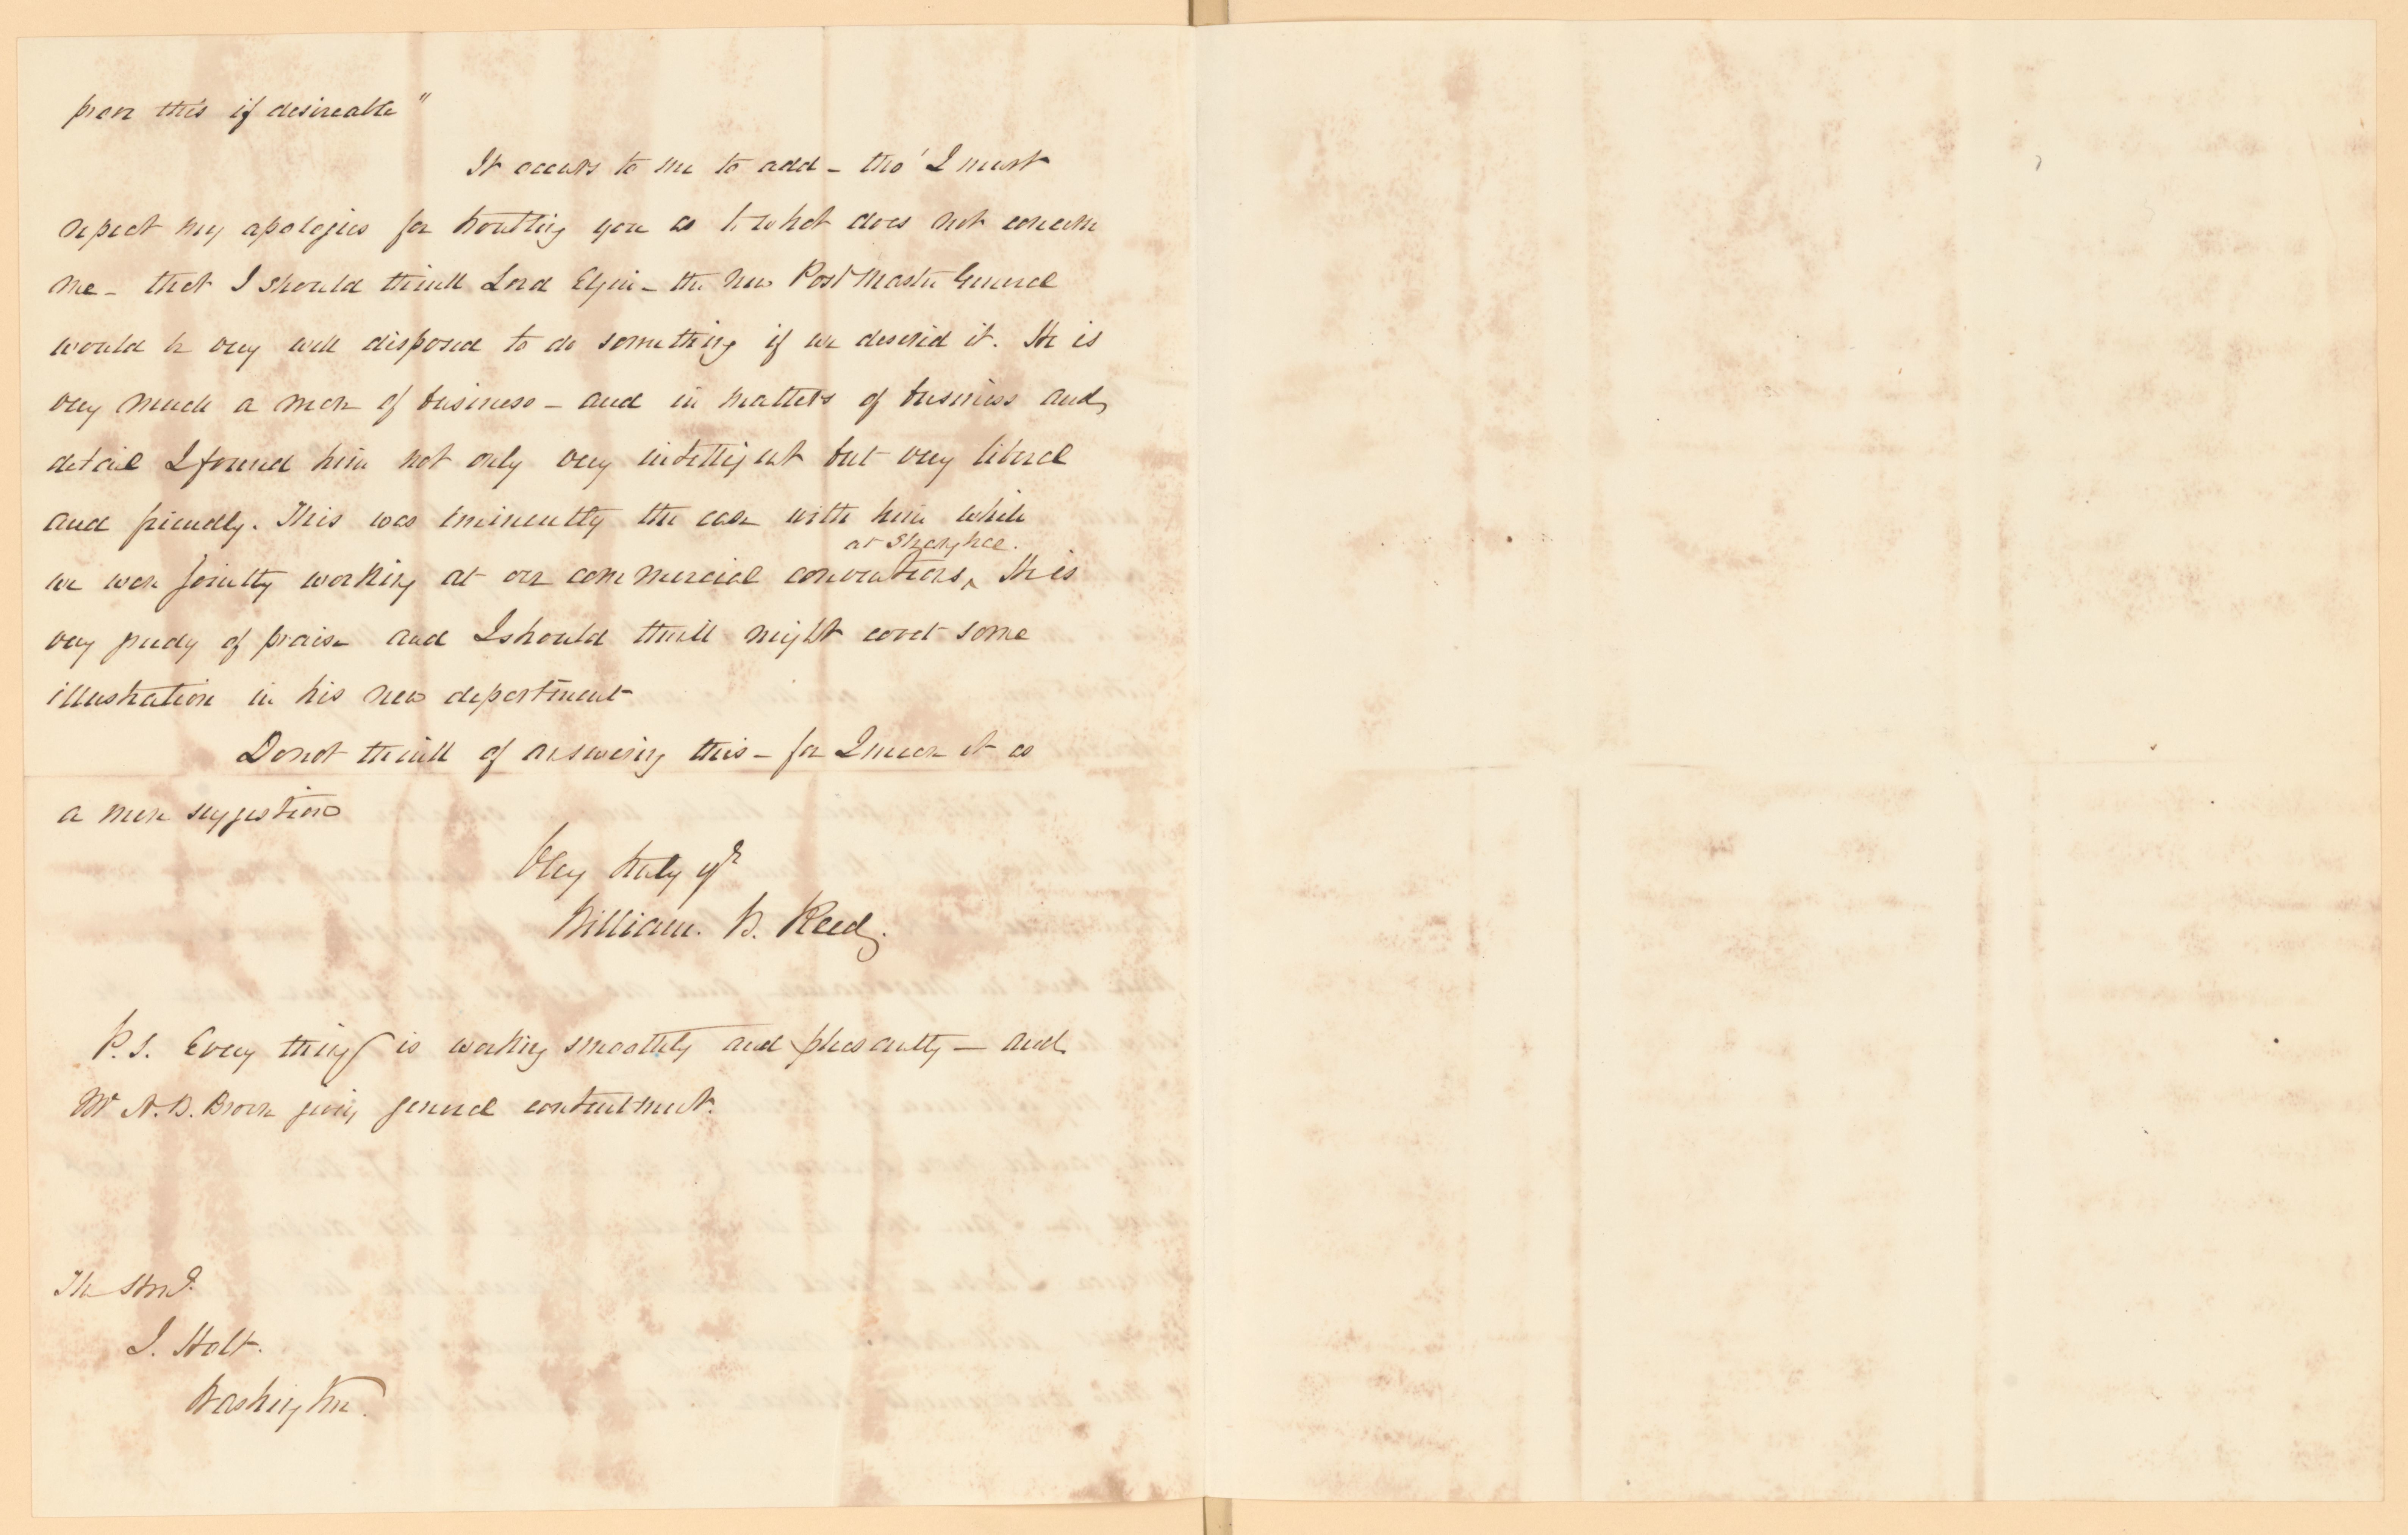 prove this if desireable"
It occurs to me to add - tho' I must
repeat my apologies for troubling you as to what does not concern
me - that I should think Lord Elgin - the new Post Master General
would be very well disposed to do something if we desired it. He is
very much a man of business - and in matters of business and
detail I found him not only very intelligent but very liberal
and friendly. This was eminently the case with him while
at Shanghae.
we were jointly working at our commercial conventions ‸ He is
very greedy of praise and I should think might covet some
illustration in his new department
Do not think of answering this - for I mean it as
a mere suggestion
Very truly yrs
William. B. Reed.
P.S. Every thing is working smoothly and pleasantly — and
Mr N. B. Brown giving general contentment.
The Honl.
J. Holt.
Washington.